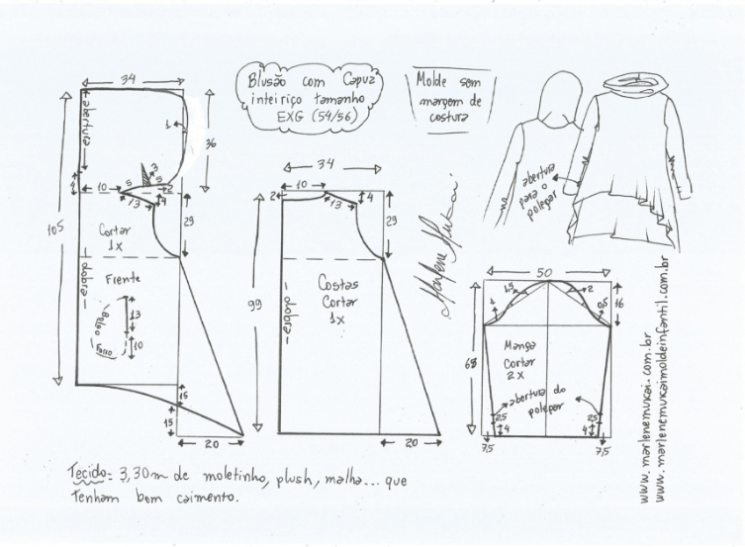 Blusão com Capuz
inteiriço tamanho
EXG (54/56)
Molde sem
margem de
costura
34
abertura
1
36
3
5
5
2
4
10
13
4
29
105
Cortar
1x
dobra
Frente
Bolso
Faca
13
10
15
15
20
34
10
2
13
4
29
99
dobra
Costas
Cortar
1x
20
Marlene Mukai
abertura
para o
polegar
50
1,5
2
1
0,5
16
68
Manga
Cortar
2x
abertura do
polegar
2,5
2,5
4
4
7,5
7,5
www.marlenemukai.com.br
www.marlenemukaimoldeinfantil.com.br
Tecido= 3,30m de moletinho, plush, malha... que
Tenham bom caimento.